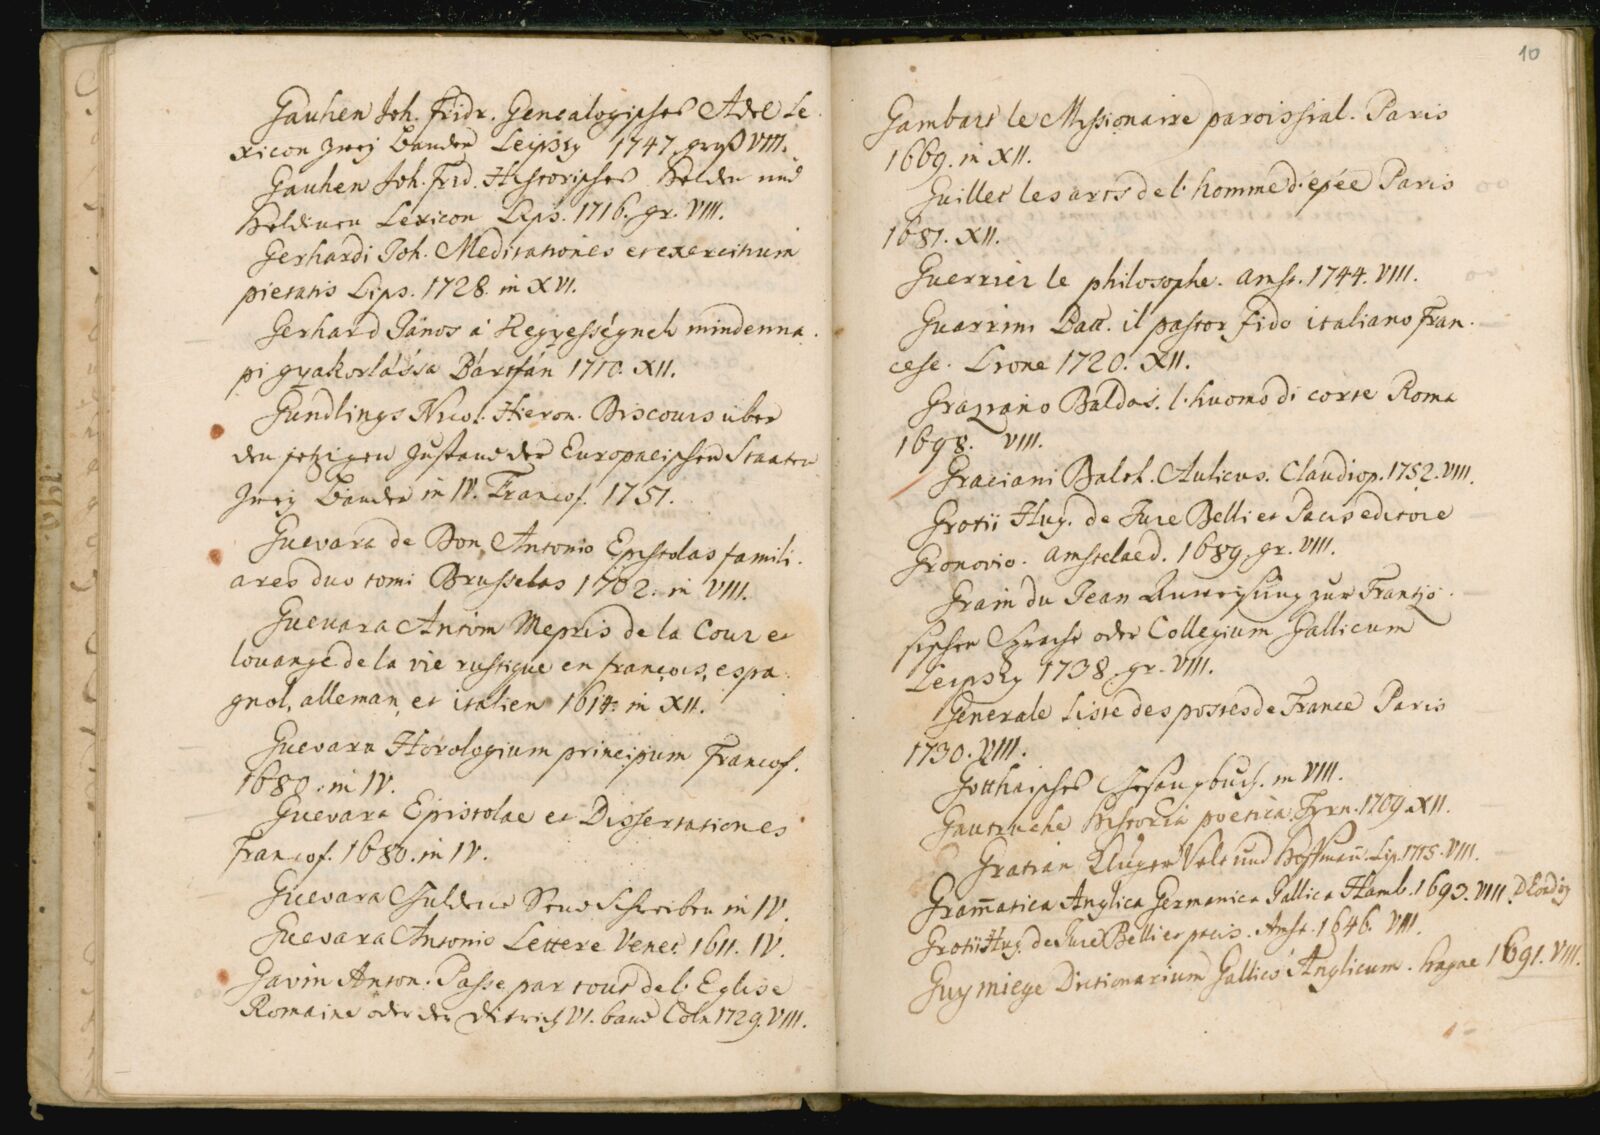 Gauhen Joh. Fridr. Genealogisches Adel Le
xicon zwej Banden Leipzig 1747. groß VIII.
Gauhen Joh. Frid. Historisches Helden und
Heldinen Lexicon Lips. 1716. gr. VIII.
Gerhardi Joh. Meditationes et exercitium
pietatis Lips. 1728. in XVI.
Gerhard János á Kegyességnek mindenna.
pi gyakorlássa Bártfán 1710. XII.
Gundlings Nicol. Hieron. Discours über
den jetzigen Zustand der Europaeischen Staaten
zwej Banden in IV. Francof. 1751.
Guevara de Don Antonio Epistolas famili.
ares duo tomi Brusselas 1702. in VIII.
Guevara Antom Mepris de la Cour et
louange de la vie rustique en françois, espa
gnol, alleman, et italien 1614. in XII.
Guevara Horologium principum Francof.
1680. in IV.
Guevara Epistolae et Dissertationes
Francof. 1680. in IV.
Guevara Guldene Send Schreiben in IV.
Guevara Antonio Lettere Venet. 1611. IV.
Gavin Anton. Passe par tout de l. Eglise
Romaine oder der Dietrich VI. band Cöln 1729. VIII.
10
Gambart le Missionaire paroissial. Paris
1669. in XII.
Guillet les arts de l. homme d. epée Paris
1681. XII.
Guerrier le philosophe. Amst. 1744. VIII.
Guarrini Batt. il pastor fido italiano Fran.
cese. Lione 1720. XII.
Grazziano Baldas. l. huomo di corte Roma
1698. VIII.
Graciani Balth. Aulicus. Claudiop. 1752. VIII.
Grotii Hug. de Jure Belli et Pacis editore
Gronovio. Amstelaed. 1689. gr. VIII.
Grain du Jean Anweisung zur Frantzö.
sischen Sprache oder Collegium Gallicum
Leipzig 1738. gr. VIII.
Generale Liste des postes de France Paris
1730. VIII.
Gotthaisches Gesangbuch. in VIII.
Gautruche historia poetica. Tyrn. 1709. XII.
Gratian Kluger Velt und Hoffman. Lip. 1715. VIII.
Gram̄atica Anglica Germanica Gallica Hamb. 1693. VIII.
Grotii Hug. de Jure Belli et pacis. Amst. 1646. VIII.
Guy miege Dictionarium Gallico Anglicum. hagae 1691. VIII.